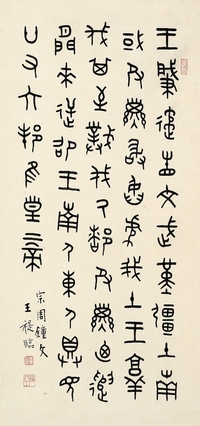 王肇遹省文武堇疆土南
或𠬝孳敢臽虐我土王敦
伐其至撲伐氒都𠬝孳迺遣
閒來逆卲王南尸東尸具見
廿又六邦隹皇上帝
宗周鐘文
王褆臨